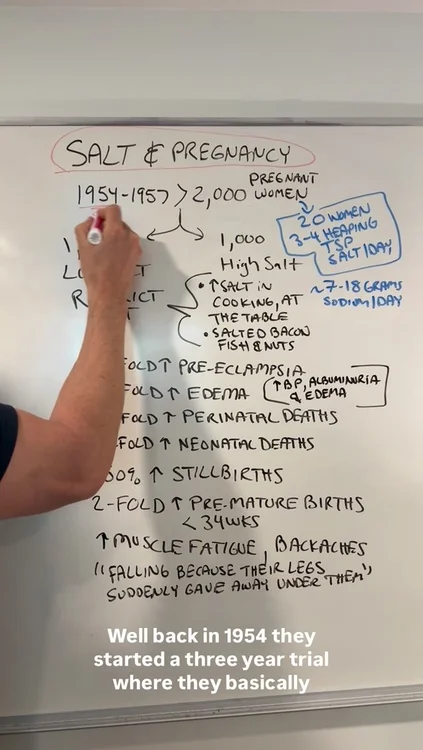 SALT & PREGNANCY
1954-1957 > 2,000 PREGNANT WOMEN
20 WOMEN
3-4 HEAPING
TSP
SALT/DAY
~7-18 GRAMS
SODIUM/DAY
1,000
High Salt
• ↑ SALT IN
COOKING, AT
THE TABLE
• SALTED BACON
FISH & NUTS
FOLD ↑ PRE-ECLAMPSIA
FOLD ↑ EDEMA
↑BP, ALBUMINURIA
& EDEMA
FOLD ↑ PERINATAL DEATHS
FOLD ↑ NEONATAL DEATHS
↑ STILLBIRTHS
2-FOLD ↑ PRE-MATURE BIRTHS
< 34WKS
↑ MUSCLE FATIGUE, BACKACHES
"FALLING BECAUSE THEIR LEGS
SUDDENLY GAVE AWAY UNDER THEM"
Well back in 1954 they
started a three year trial
where they basically